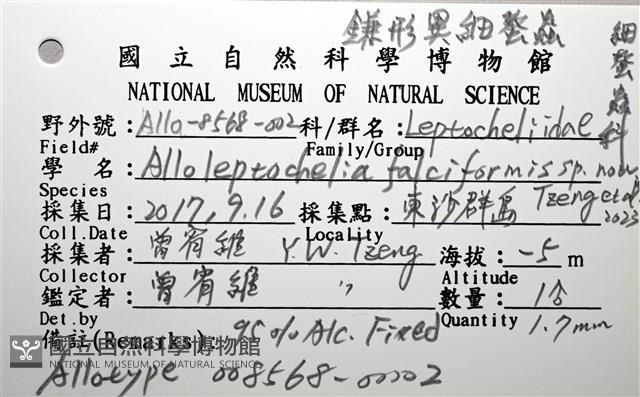 鎌形異細螯蟲
細螯蟲科
國立自然科學博物館
NATIONAL MUSEUM OF NATURAL SCIENCE
野外號：Allo-8568-002 科/群名：Leptocheliidae
Field# Family/Group
學 名：Alloleptochelia falciformis sp. nov.
Species Tzeng et al. 2023
採集日：2017,9.16 採集點：東沙群島
Coll.Date Locality
採集者：曾宥維 Y.W. Tzeng 海拔：-5 m
Collector Altitude
鑑定者：曾宥維 〃 數量：1♂
Det.by Quantity 1.7mm
備註(Remarks) 95% Alc. Fixed
國立自然科學博物館
NATIONAL MUSEUM OF NATURAL SCIENCE
Allotype 008568-00002